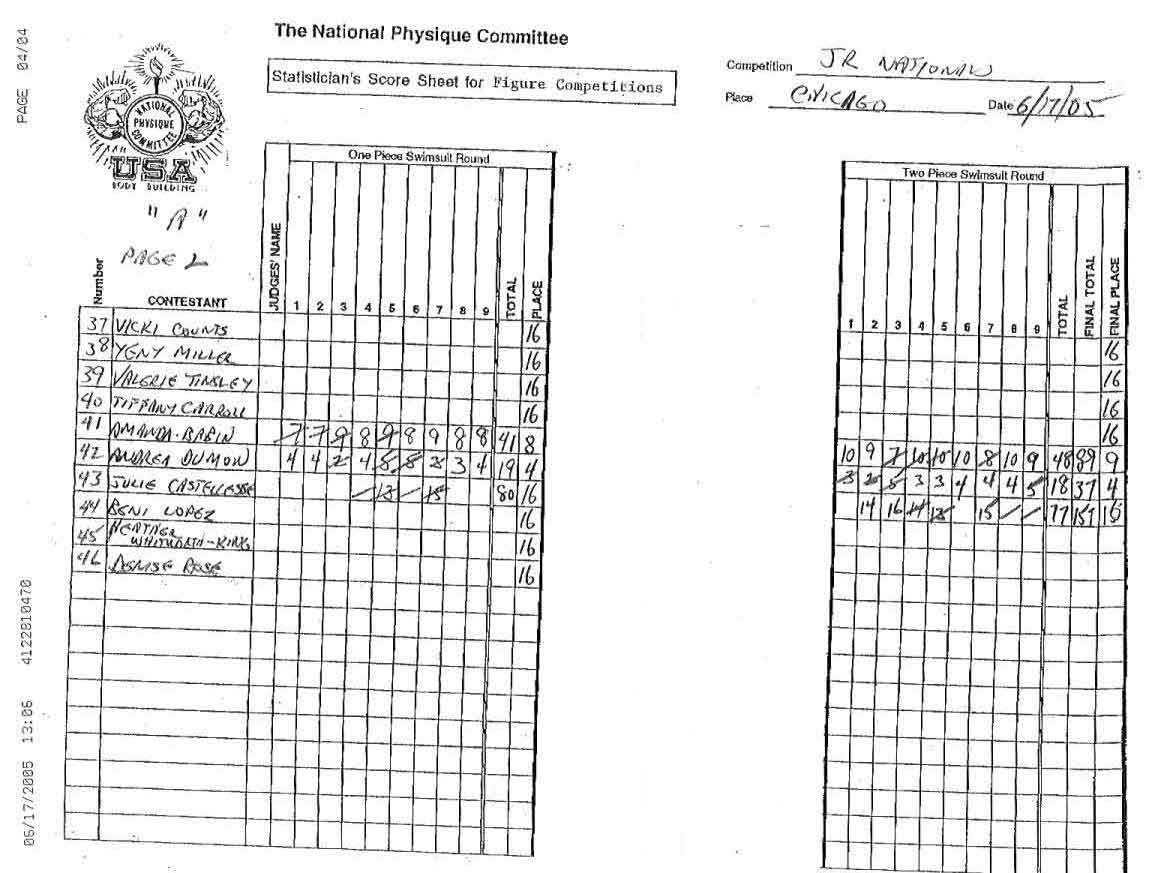 PAGE 04/04
The National Physique Committee
Statistician's Score Sheet for Figure Competitions
Competition JR NATIONALS
Place CHICAGO Date 6/17/05
NATIONAL PHYSIQUE COMMITTEE
USA
BODY BUILDING
"A"
PAGE 2
One Piece Swimsuit Round
Two Piece Swimsuit Round
Number CONTESTANT JUDGES' NAME 1 2 3 4 5 6 7 8 9 TOTAL PLACE 1 2 3 4 5 6 7 8 9 TOTAL FINAL TOTAL FINAL PLACE
37 VICKI COUNTS 16 16
38 YENY MILLER 16 16
39 VALERIE TINSLEY 16 16
40 TIFFANY CARROLL 16 16
41 AMANDA BABIN 7 7 9 8 9 8 9 8 8 41 8 10 9 7 10 10 10 8 10 9 48 89 9
42 ANDREA DUMON 4 4 2 4 5 5 3 3 4 19 4 3 2 5 3 3 4 4 4 5 18 37 4
43 JULIE CASTELLESSE 13 15 80 16 14 16 15 77 157 16
44 BENI LOPEZ 16
45 HEATHER WHITWORTH-KING 16
46 DENISE ROSE 16
06/17/2005 13:06 4122810470